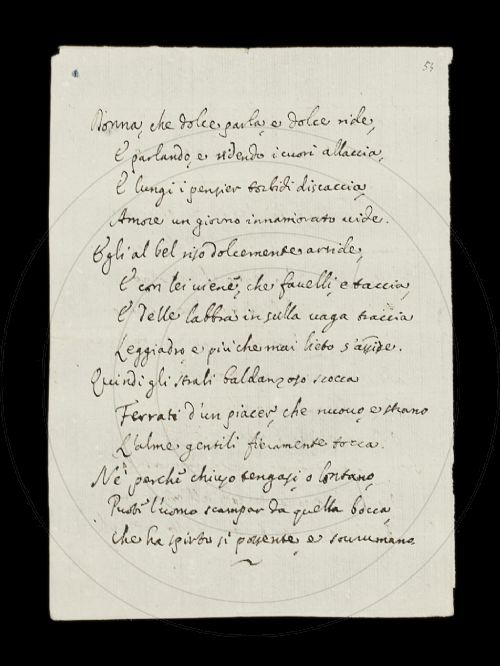 53
Donna, che dolce parla, e dolce ride,
E parlando, e ridendo i cuori allaccia,
E lungi i pensier torbidi discaccia,
Amore un giorno innamorato vide.
Egli al bel riso dolcemente arride,
E con lei viene, che favelli, e taccia,
E delle labbra in sulla vaga traccia
Leggiadro, e più che mai lieto s'asside.
Quindi gli strali baldanzoso scocca
Ferrati d'un piacer, che nuovo, e strano
L'alme gentili fieramente tocca.
Nè perchè chiuso tengasi, o lontano,
Puote l'uomo scampar da quella bocca,
Che ha spirto sì possente, e sovrumano